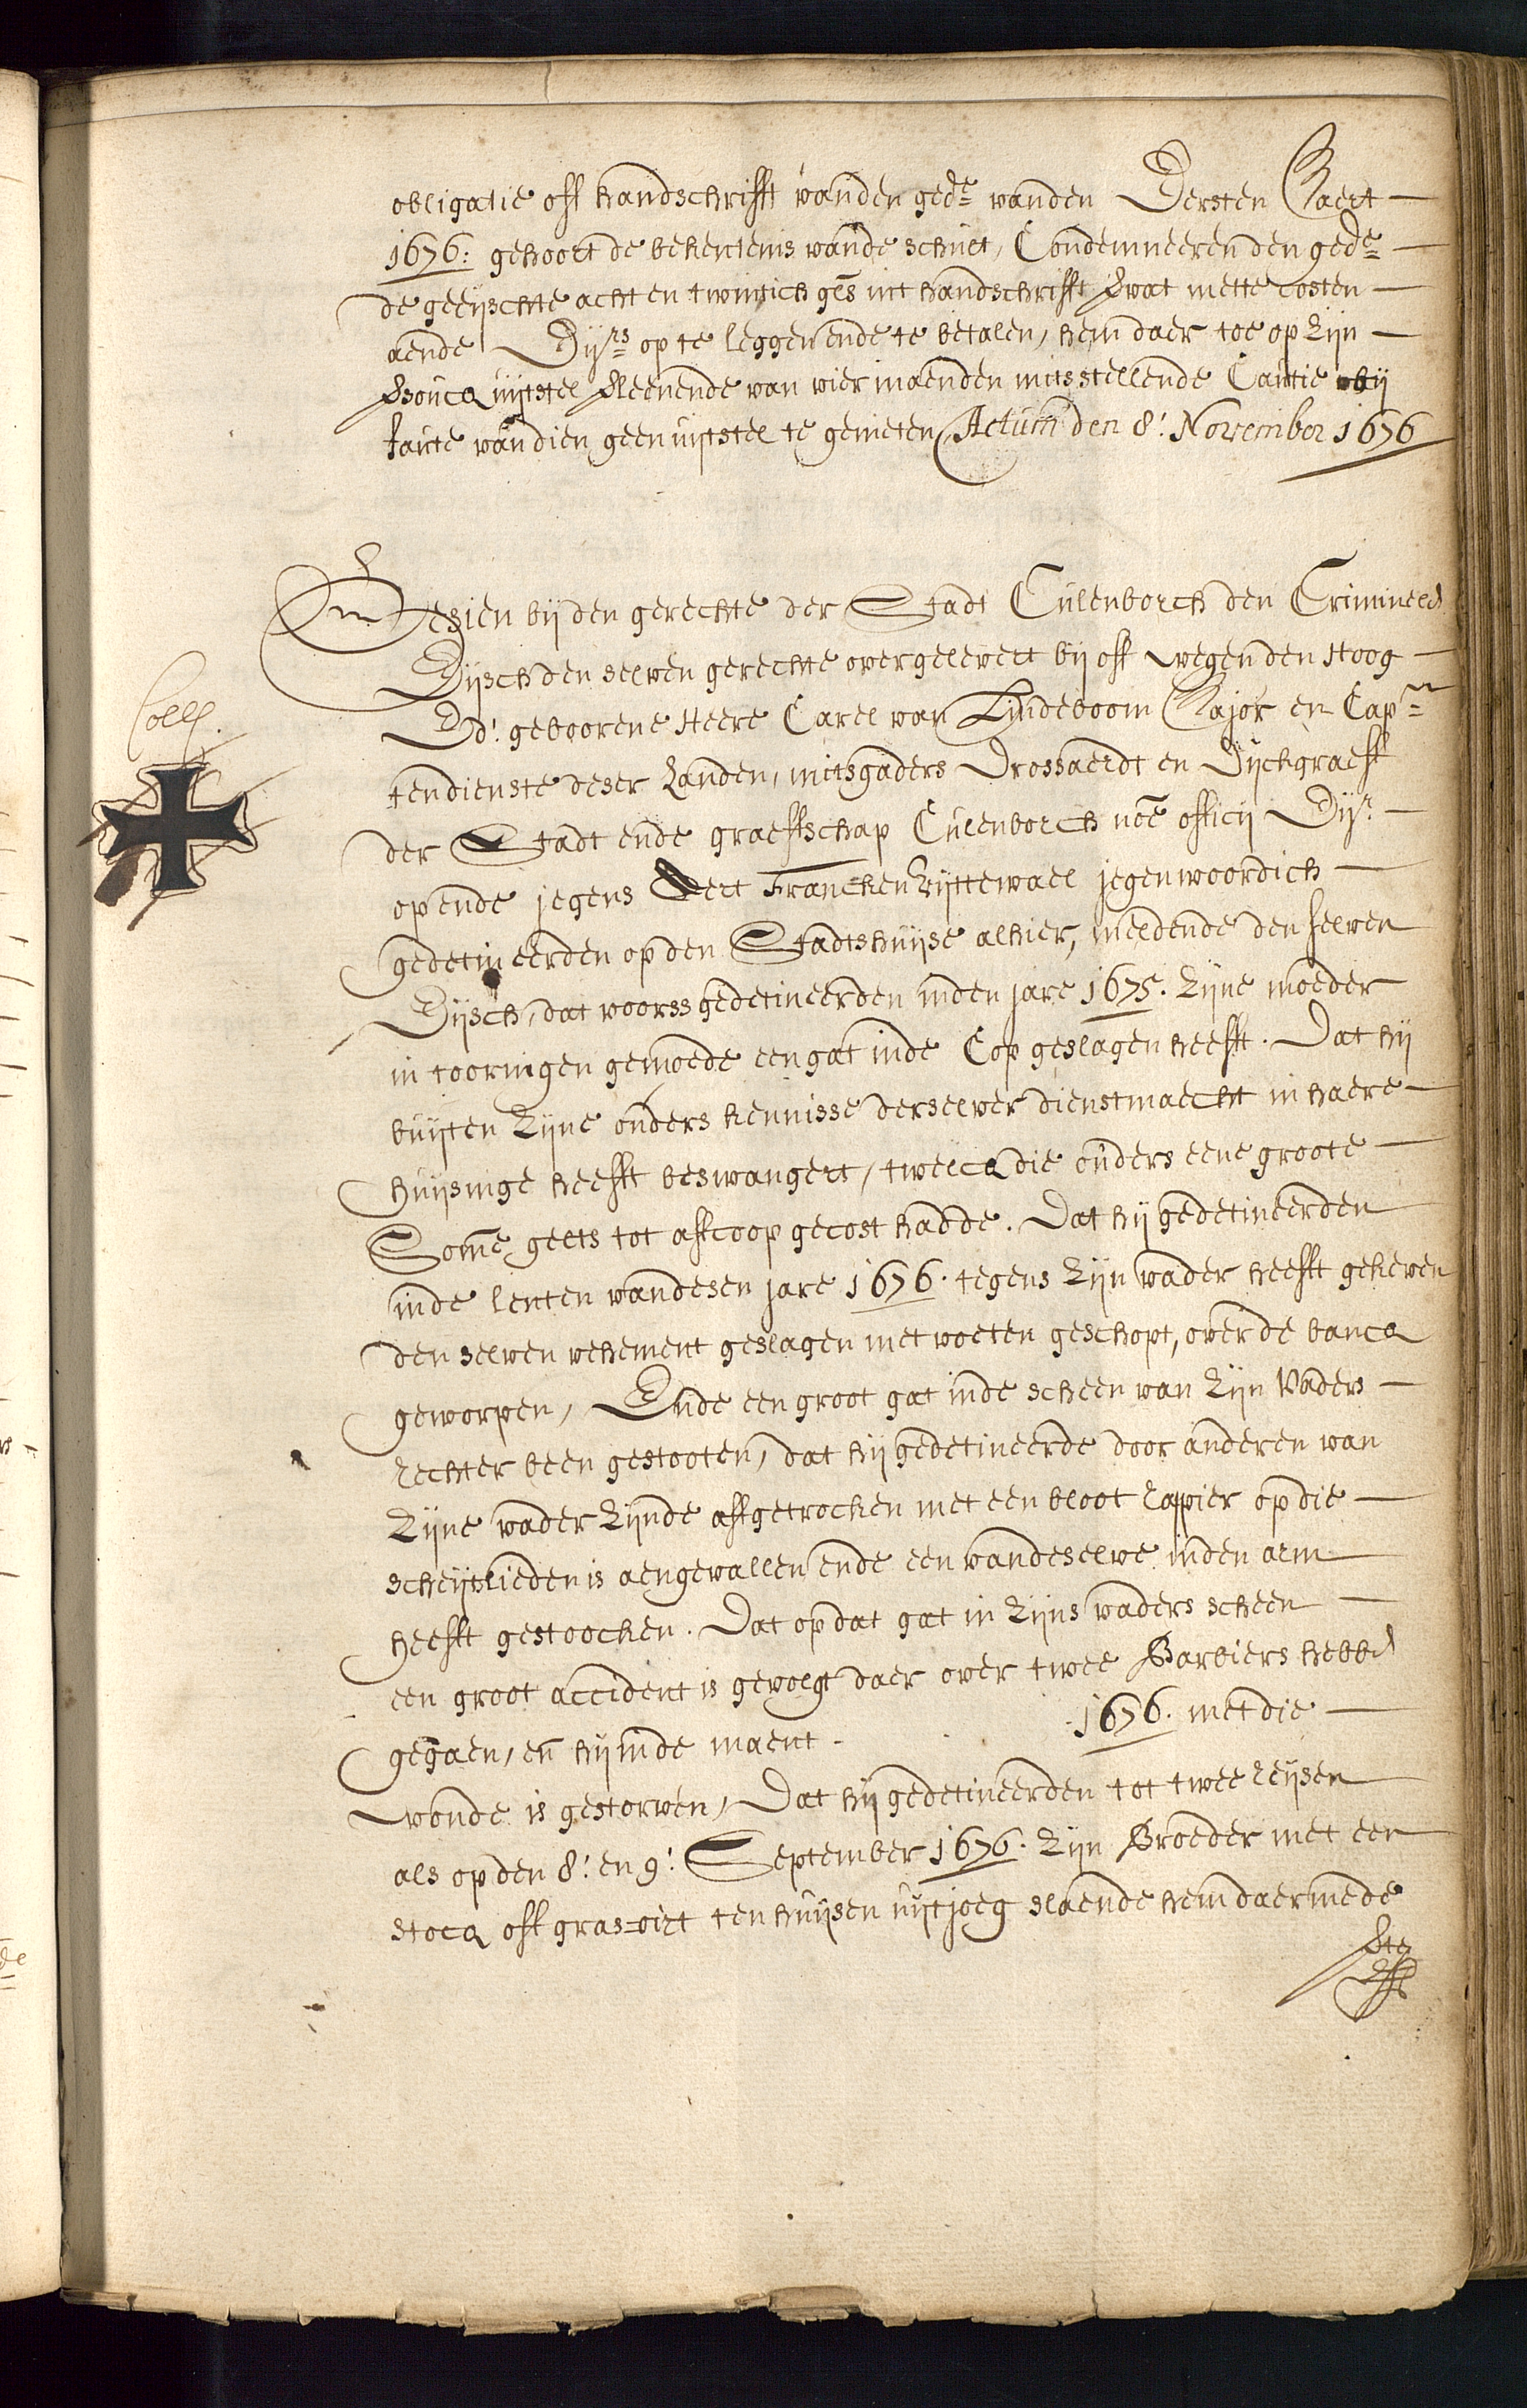 obligatie off handschrifft vanden gede vanden Eersten Maert
1676: gehoort de bekentenis vande schult, Condemneeren den gede
de geeijschte acht en twintich gls uit handschrifft Quat mette costen
aende Eijrs op te leggen ende te betalen, hem daer toe op zijn
versoucq uijtstel verleenende van vier maenden mits stellende Cautie bij
faute van dien geen uijtstel te genieten, Actum den 8: November 1676
Gesien bij den gerechte der Stadt Culenborch den Crimineel
Eijsch den selven gerechte overgelevert bij off wegen den Hoog
Ed: geboorene Heere Carel van Lindeboom Major en Capn
Coll.
tendienste deser Landen, mitsgaders Drossaerdt en Dijckgraeff
der Stadt ende graeffschap Culenborch noe officij Eijr
op ende jegens Aert Francken Uijttewael jegenwoordich
gedetineerden op den Stadtshuijse alhier, meldende den selven
Eijsch, dat voorss gedetineerden inden jare 1675. zijne moeder
in toornigen gemoede een gat inde Cop geslagen heefft. Dat hij
buijten zijne ouders kennisse derselver dienstmaecht in haere
huijsinge heefft beswangert, twelcq die ouders eene groote
Somme gelts tot affcoop gecost hadde. Dat hij gedetineerden
inde lenten van desen jare 1676. tegens zijn vader heefft gekeven
den selven vehement geslagen met voeten geschopt, over de bancq
geworpen, Ende een groot gat inde scheen van zijn Vaders
rechter been gestooten, dat hij gedetineerde door anderen van
zijne vader zijnde affgetrocken met een bloot rappier op die
scheijtslieden is aengevallen ende een van deselve inden arm
heefft gestoocken. Dat op dat gat in zijns vaders scheen
een groot accident is gevolgt daer over twee Barbiers hebben
gegaen, en hij inde maent 1676. met die
wonde is gestorven, Dat hij gedetineerden tot twee reijsen
als op den 8: en 9: September 1676. zijn Broeder met een
stocq off gras=oirt ten huijsen uijtjoeg slaende hem daermede